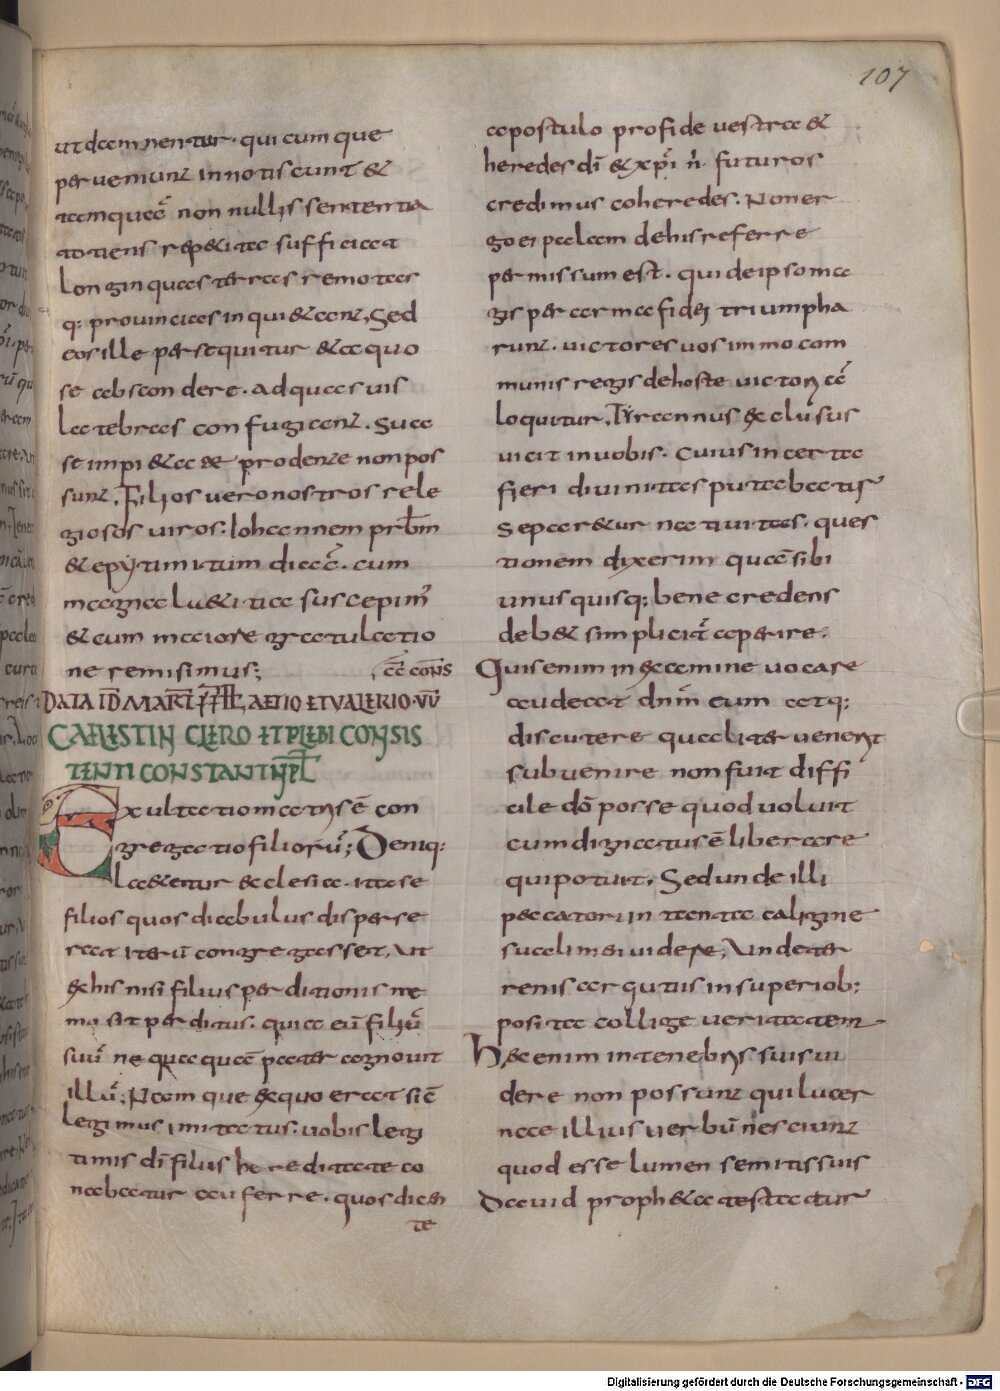 107
ut damnentur. qui cum que
perveniunt innotiscunt &
tamquā non nullis sententia
totiens rep&ita sufficiat
longinquas terras remotas
q: provincias inqui&ant, Sed
eos ille persequitur & a quo
se abscondere. ad quas vis
latebras confugiant. Sua
se impi&a&e prodente non pos
sunt. Filios vero nostros rele
giosos viros. Iohannem prƀm
& epytimitum diac̄. cum
magna lu&itia suscepim̄
& cum maiore gratulatio
ne remisimus;
c̄c cōns
DATA ID MART AETIO ET VALERIO·VV
CAELESTIN CLERO ET PLEBI CONSIS
TENTI CONSTANTINPL
Exultatio matris ē con
gregatio filiorū; Deniq:
la&etur aeclesia. ita se
filios quos diabulus disperse
rat iterū congregasset, Ut
ex his nisi filius perditionis ne
mo sit perditus. quia eū filiū
suū ne qua quē pater agnovit
illū; Nam que ex quo erat sic̄
legimus imitatus. vobis legi
timis dī filiis hereditate co
nabatur auferre. quos dicen
te
apostulo pro fide vestra &
heredes dī & xp̄i n̄. futuros
credimus coheredes. Non er
go ei palam de his referre
permissum est. qui de ipso ma
gis per arma fidei triumpha
runt. victores vos immo com
munis regis de hoste victoria
loquitur. Tirannus exclusus
vicit in vobis. Cuius incerta
fieri divinitas putabatis
separ&ur nativitas. ques
tionem dixerim quā sibi
unus quisq; bene credens
deb& simplicit̄ aperire.
Quis enim in examine vocare
audeat dn̄m eum atq:
discutere qualiter venerit
subvenire non fuit diffi
cile dō posse quod voluit
cum dignatus ē liberare
qui potuit. Sed unde illi
peccatori in tanta caligine
sua limen videre, Unde ter
renis argutiis in superiob;
posita collige veritatem
Haec enim in tenebris suis vi
dere non possunt qui lucer
nae illius verbū nesciunt
quod esse lumen semitis suis
David proph&a testatur
Digitalisierung gefördert durch die Deutsche Forschungsgemeinschaft - DFG